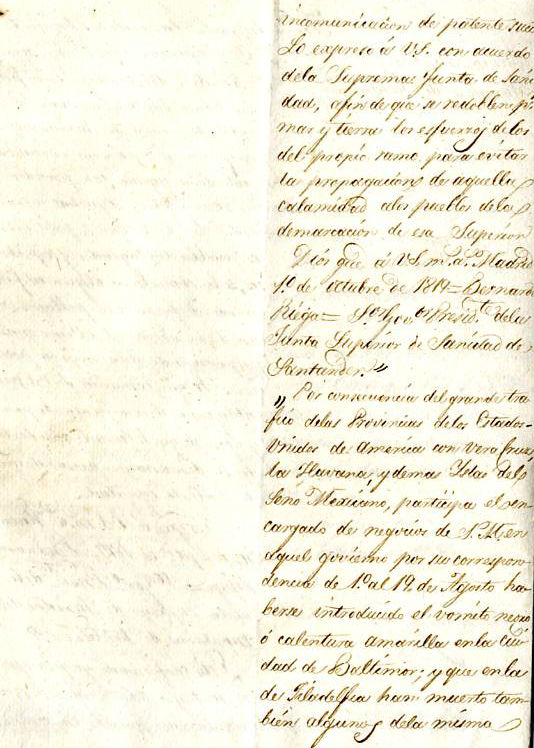 incomunicacion de patente sucia
Lo expreso á V.S. con acuerdo
dela Suprema Junta de Sani
dad, afin de que se redoblen pr
mar y tierra los esfuerzos delos
del propio ramo, para evitar
la propagacion de aquella
calamidad alos pueblos dela
demarcacion de esa Superior
Dios gue. á V.S. m.s a.s Madrid
1.º de octubre de 1819= Bernardo
Riega= S.or Gov.or Presid.te dela
Junta Superior de Sanidad de
Santander."
" Por consecuencia del grande tra
fico delas Provincias delos Estados-
Unidos de America con Vera Cruz
la Havana, y demas Yslas del
Seno Mexicano, participa el en-
cargado de negocios de S. M. en
aquel govierno por su correspon-
dencia de 1.º al 19. de Agosto ha-
berse introducido el vomito negro
ó calentura amarilla enla ciu-
dad de Baltimor; y que enla
de Filadelfia han muerto tam-
bien algunos dela misma